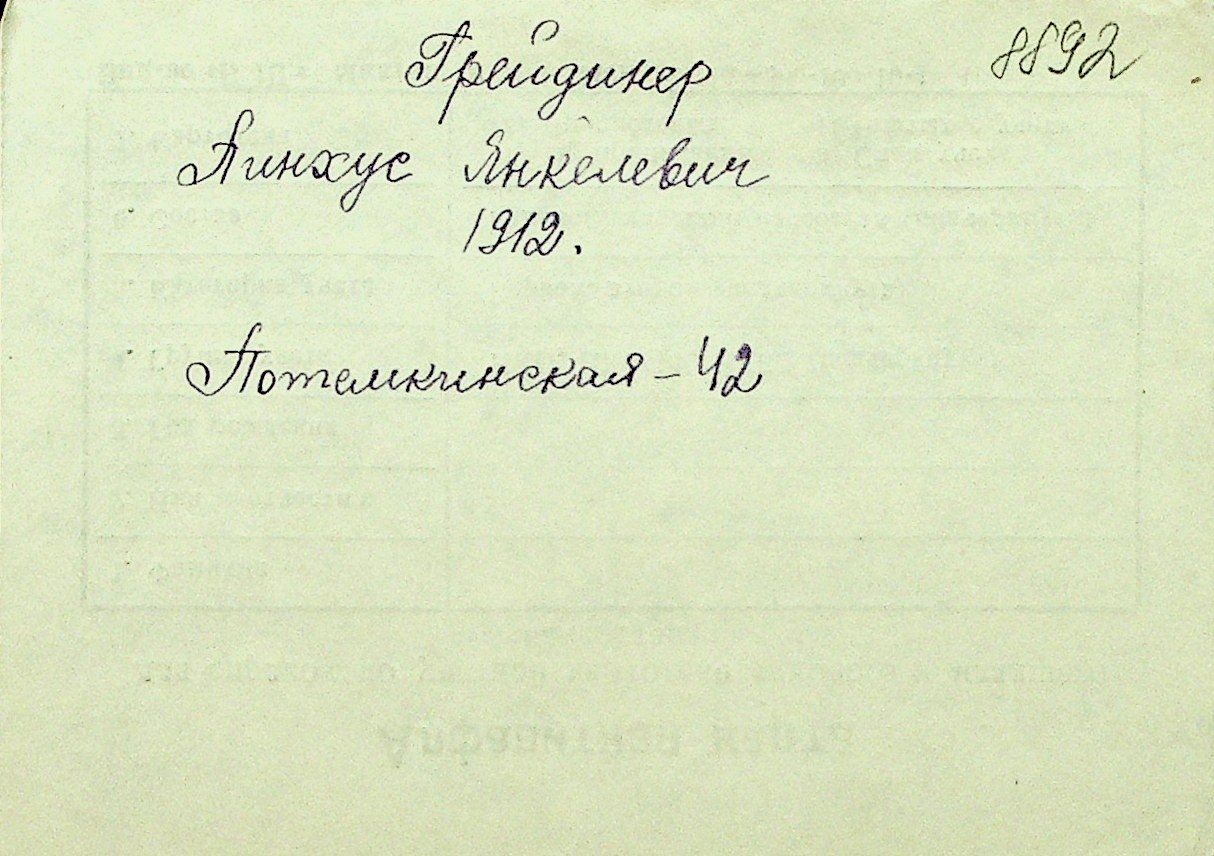 8892
Грейдинер
Пинхус Янкелевич
1912.
Потемкинская - 42